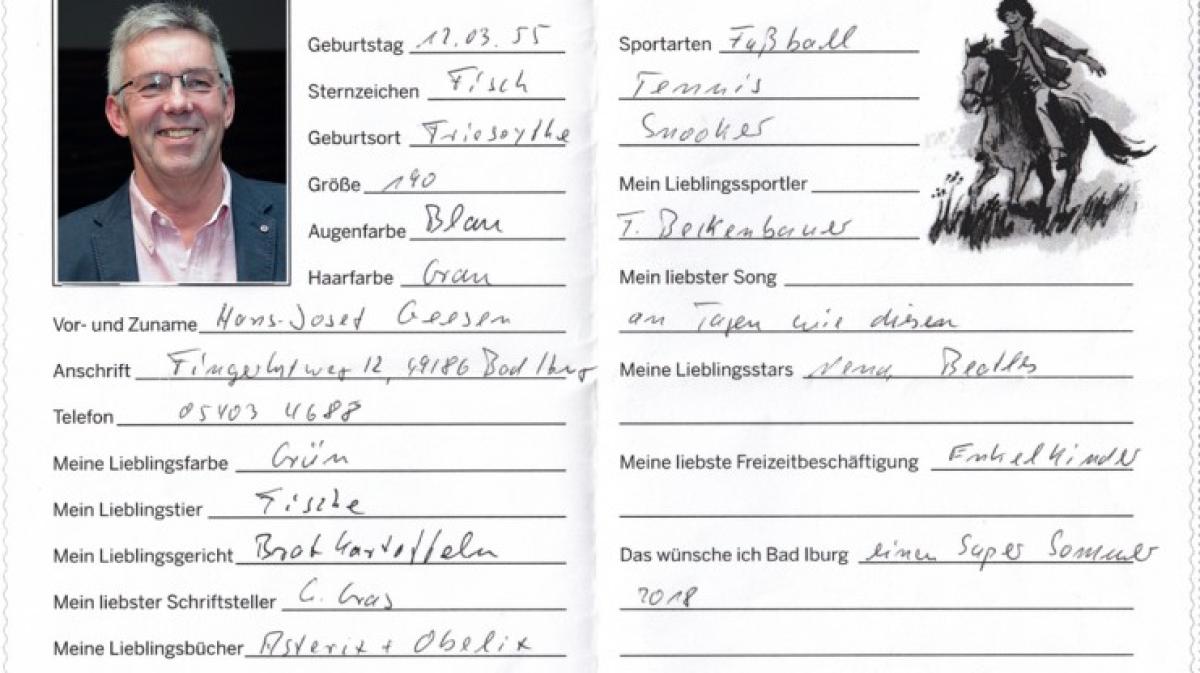 Geburtstag 12.03.55
Sternzeichen Fisch
Geburtsort Friesoythe
Größe 190
Augenfarbe Blau
Haarfarbe Grau
Vor- und Zuname Hans-Josef Geesen
Anschrift Fingerhutweg 12, 49186 Bad Iburg
Telefon 05403 4688
Meine Lieblingsfarbe Grün
Mein Lieblingstier Fische
Mein Lieblingsgericht Bratkartoffeln
Mein liebster Schriftsteller G. Gras
Meine Lieblingsbücher Asterix + Obelix
Sportarten Fußball
Tennis
Snooker
Mein Lieblingssportler
F. Beckenbauer
Mein liebster Song
an Tagen wie diesen
Meine Lieblingsstars Nena, Beatles
Meine liebste Freizeitbeschäftigung Enkelkinder
Das wünsche ich Bad Iburg einen Super Sommer
2018